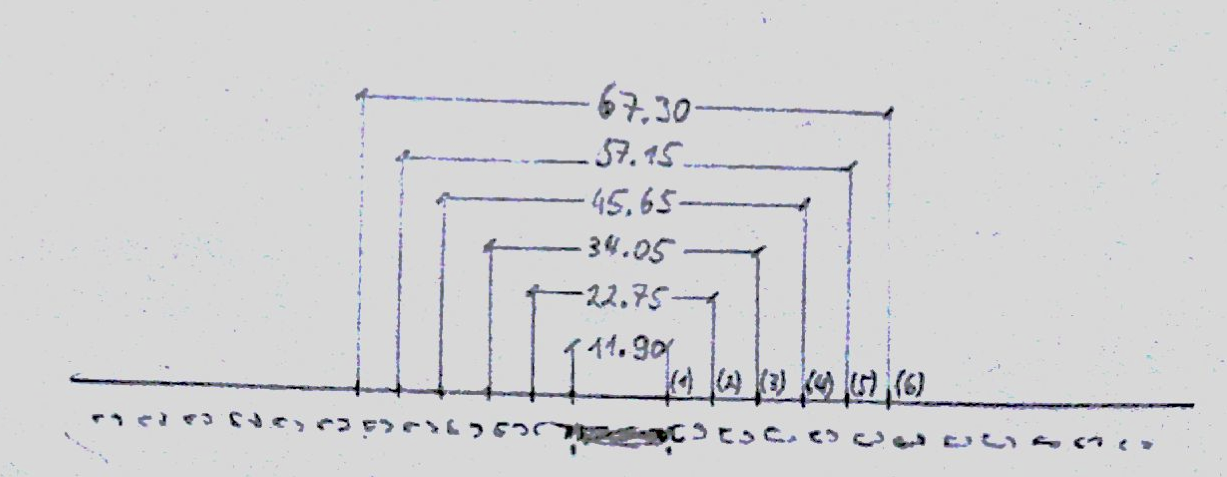 67.30
57.15
45.65
34.05
22.75
11.90
(1) (2) (3) (4) (5) (6)